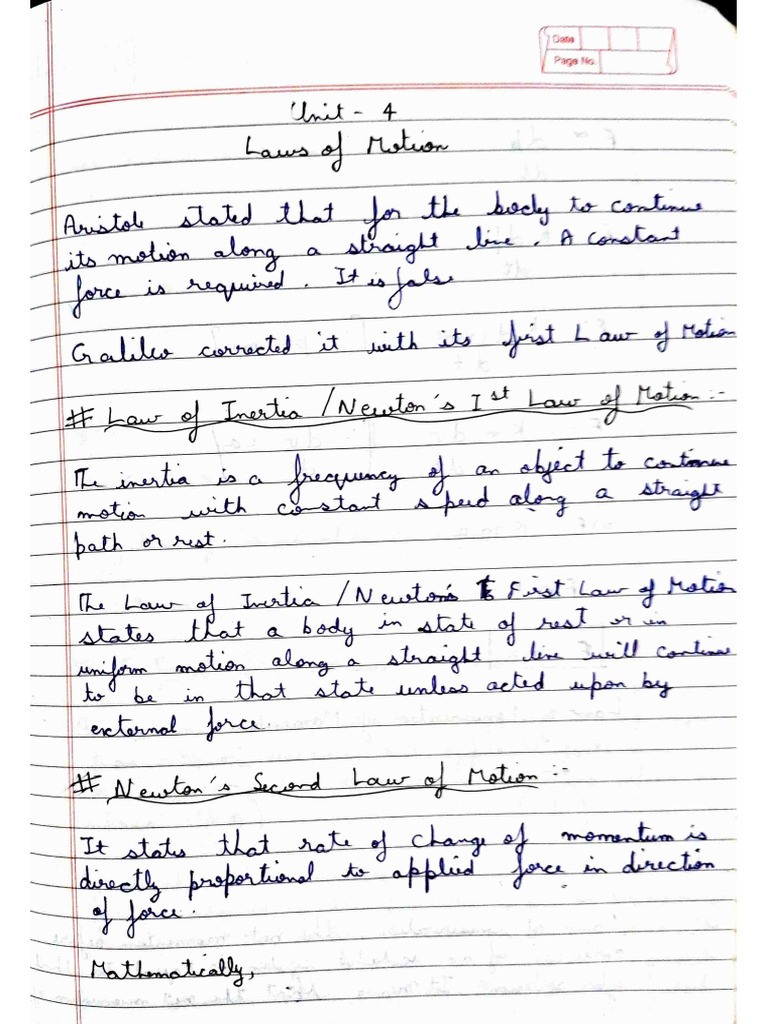 Date
Page No.
Unit - 4
Laws of Motion
Aristole stated that for the body to continue
its motion along a straight line. A constant
force is required. It is false
Galileo corrected it with its first Law of Motion
# Law of Inertia / Newton's Ist Law of Motion :-
The inertia is a frequency of an object to continue
motion with constant speed along a straight
path or rest.
The Law of Inertia / Newton's First Law of Motion
states that a body in state of rest or in
uniform motion along a straight line will continue
to be in that state unless acted upon by
external force.
# Newton's Second Law of Motion :-
It states that rate of change of momentum is
directly proportional to applied force in direction
of force.
Mathematically,